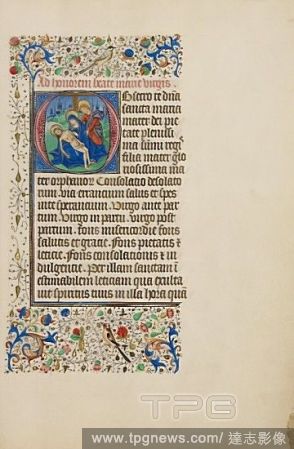 Ad honorem beate marie virgis
Bsecro te dña
sancta maria
mater dei pie
tate plenissi
ma sũmi regꝭ
filia mater glo
riosissima ma
ter orphanoꝝ Consolatio desolato
rum via errancium salus et spes
inte sperancium. Virgo ante par
tum. Virgo in partu. virgo post
partum. Fons misericordie fons
salutis et gracie. Fons pietatis et
leticie. Fons consolacionis et in
dulgentie. Per illam sanctam i
estimabilem leticiam qua exulta
uit spiritus tuus in illa hora quã
TPG
www.tpgnews.com/ 達志影像